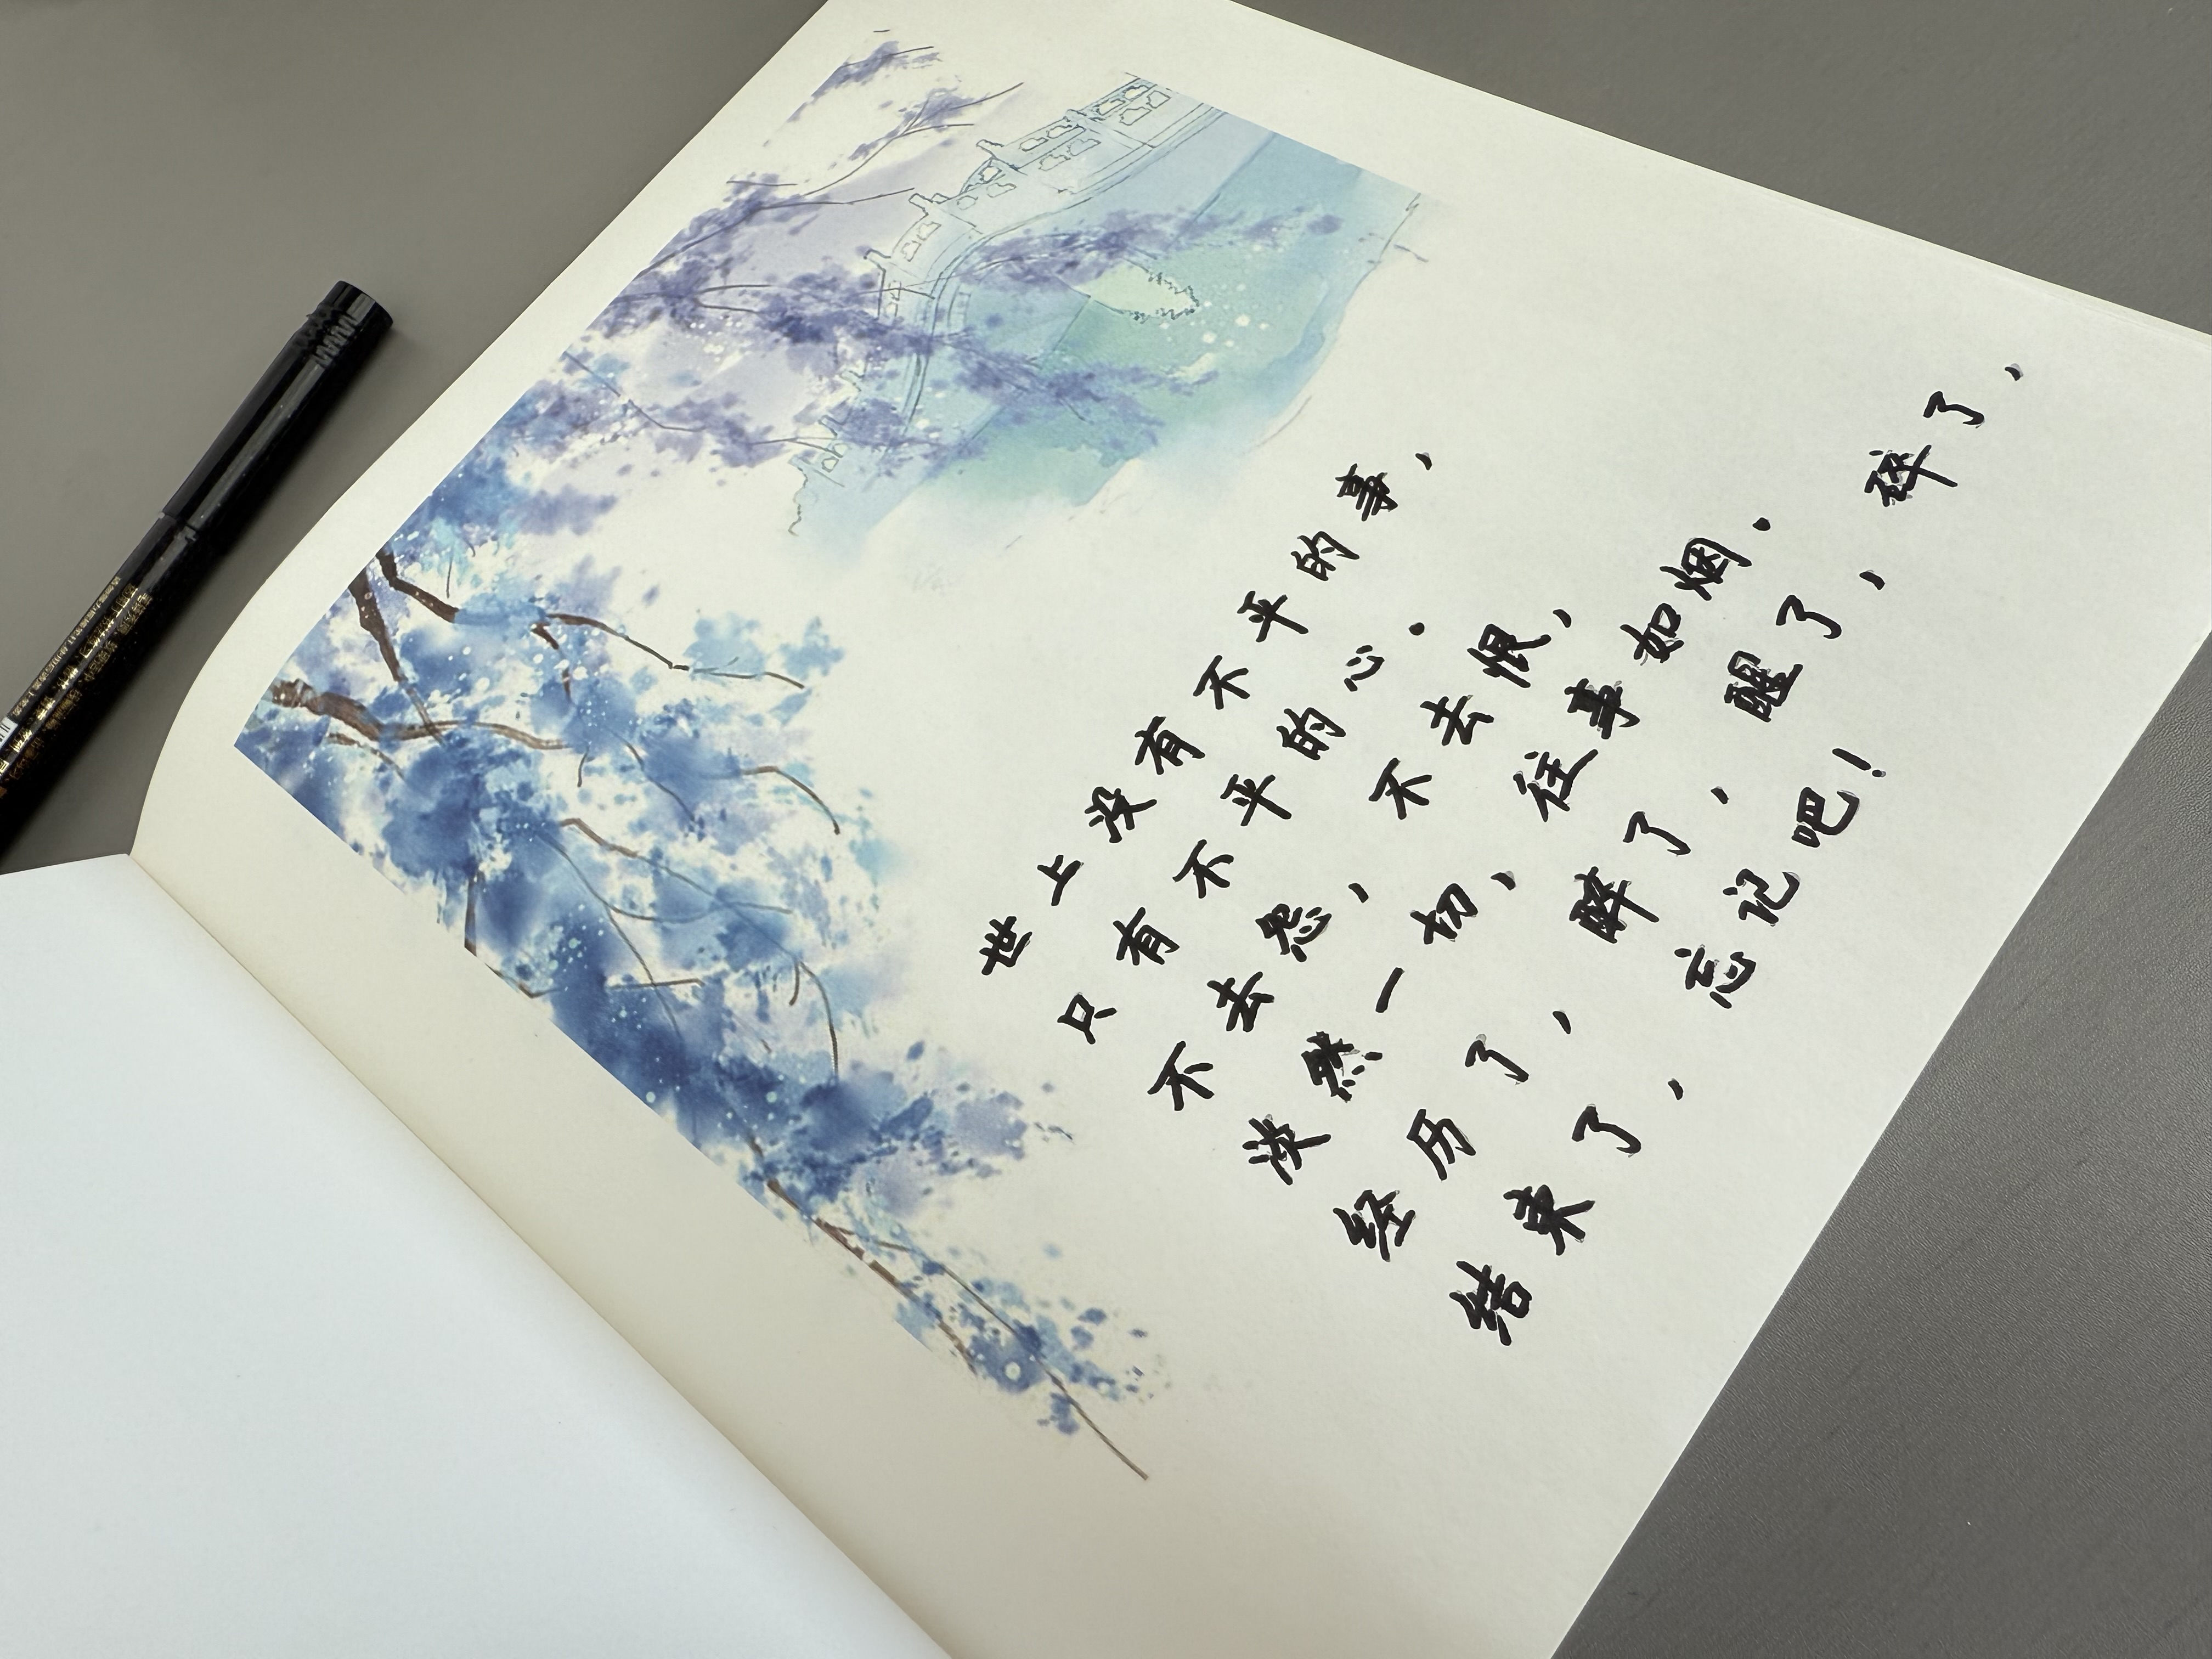 世上没有不平的事，
只有不平的心.
不去怨，不去恨，
淡然一切，往事如烟.
经历了，醉了，醒了，碎了，
结束了，忘记吧！